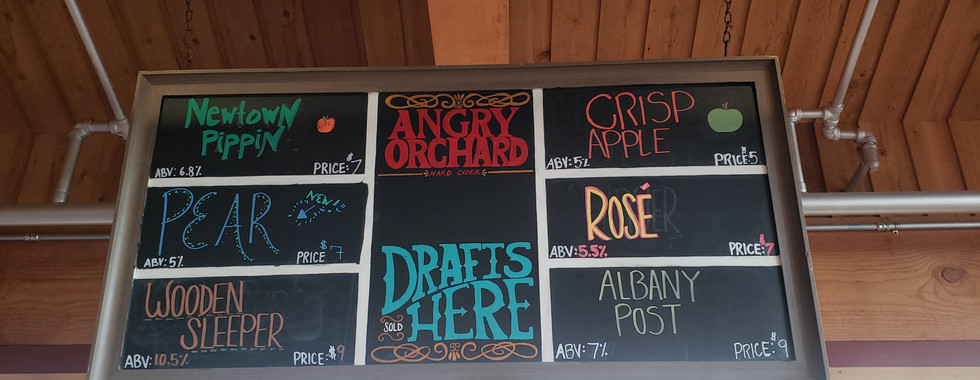 Newtown
Pippin
ABV: 6.8%
PRICE: $7
PEAR
NEW!
ABV: 5%
PRICE $7
WOODEN
SLEEPER
ABV: 10.5%
PRICE: $9
ANGRY
ORCHARD
HARD CIDER
DRAFTS
SOLD
HERE
CRISP
APPLE
ABV: 5%
PRICE: $5
ROSÉ
ABV: 5.5%
PRICE: $7
ALBANY
POST
ABV: 7%
PRICE: $9